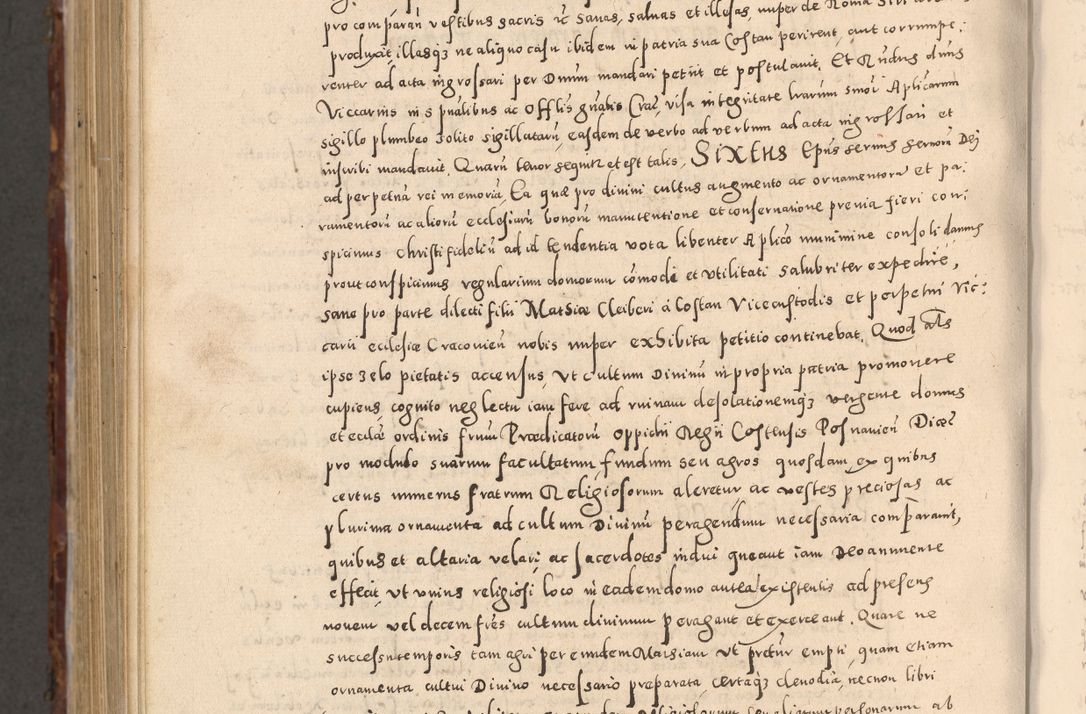 pro comparan vestibus sacris etc sanas, saluas et illesas, nuper de Roma
produxit illasq3 ne aliquo casu ibidem in patria sua Costan perirent, aut corrumpe:
renter ad acta ingrossari per Dnum mandari petiit et postulauit. Et Rndus dnus
Viccarius in spũalibus ac Offlis gñalis Crac, visa integritate lrarum sinõr Aplicarum
sigillo plumbeo solito sigillatarũ, easdem de verbo ad verbum ad acta ingrossari et
inscribi mandauit. Quarũ tenor sequitur et est talis. SIXtus Epũs seruus seruorũ Dei
ad perpetuã rei memoriã. Ea quæ pro diuini cultus augmento ac ornamentorũ et pa:
ramentorũ ac aliorũ ecclesiarũ bonorũ manutentione et conseruatione preuia fieri con:
spicimus Christi fideliũ ad id tendentia vota libenter Aplico munimine consolidamus
prout conspicimus regularium domorum cõmodi et vtilitati salubriter expedire,
sane pro parte dilecti filii Matsiæ Cleiberi à Costan Vicecustodis et perpetui Vic:
carii ecclesiæ Cracouieñ nobis nuper exhibita petitio continebat. Quod als
ipse zelo pietatis accensus, vt cultum Diuinũ in propria patria promouere
cupiens, cognito neglectu iam fere ad ruinam desolationemq3 vergente domus
et ecclæ ordinis frum Prædicatorũ oppidii Regii Costensis Posnanieñ Diœc
pro modulo suarum facultatum, fundum seu agros quosdam, ex quibus
certus numerus fratrum Religiosorum aleretur, ac vestes preciosas ac
plurima ornamenta ad cultum Diuinũ peragendum necessaria comparauit,
quibus et altaria velari, ac sacerdotes indui queant iam Deo annuente
effecit, vt vnius religiosi loco in eadem domo antea existentis ad presens
nouem vel decem frẽs cultum diuinum peragant et exerceant. Quare ne
successu temporis tam agri per eundem Matsiam vt prẽtur empti, quam etiam
ornamenta cultui Diuino necessario preparata, certaq3 clenodia, necnon libri
religiosorum seu aliarum personarum ab